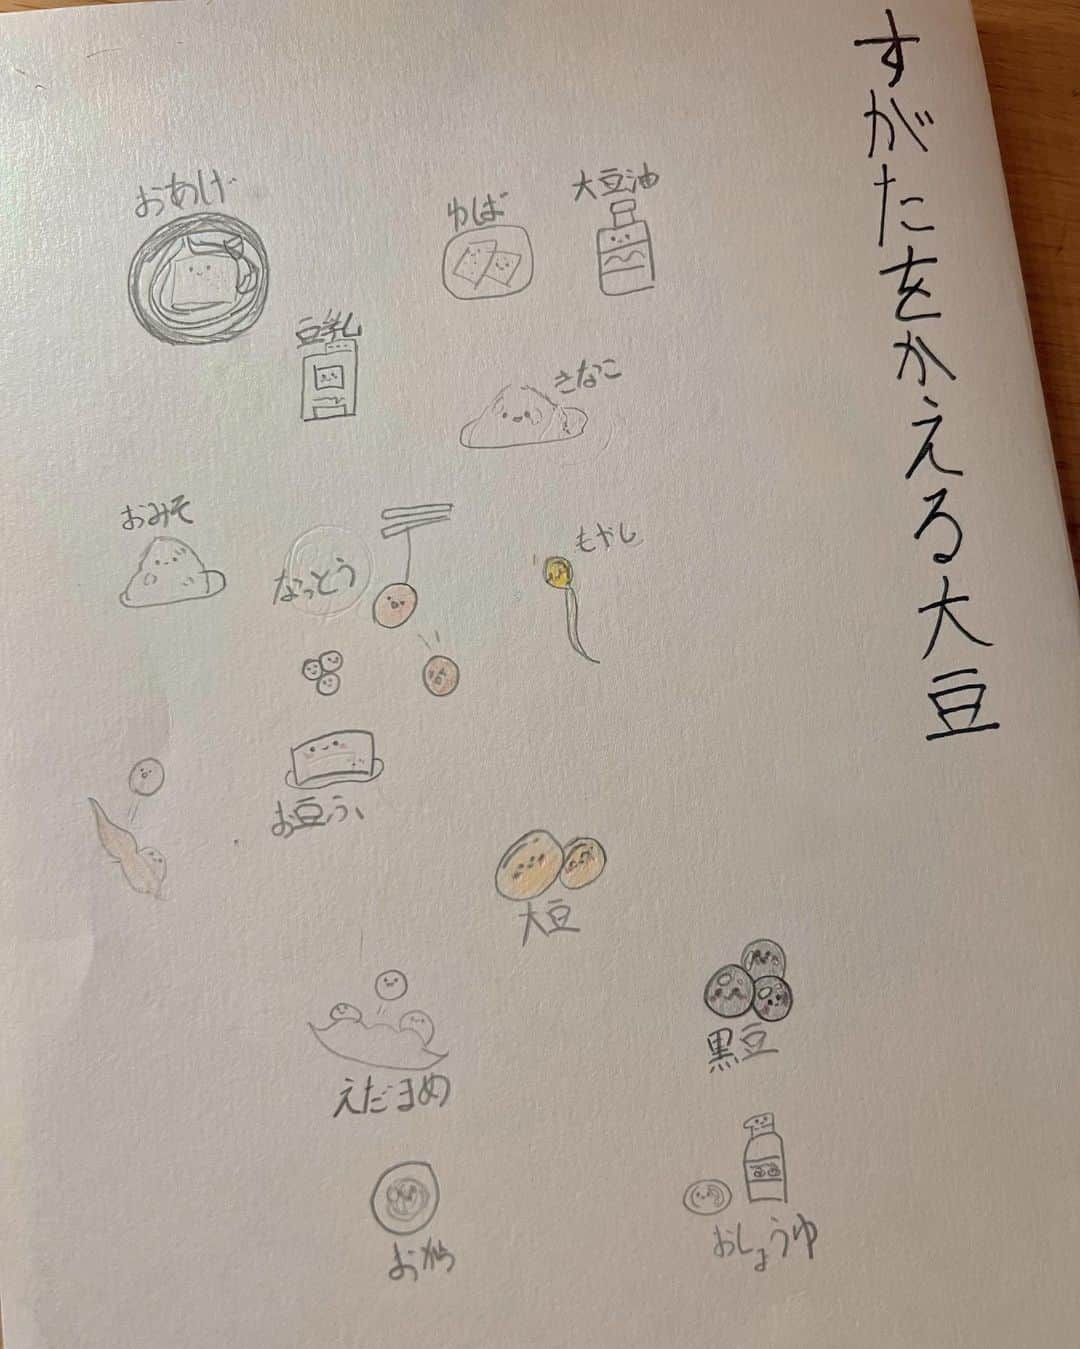 すがたをかえる大豆
おあげ
ゆば
大豆油
豆乳
きなこ
おみそ
なっとう
もやし
お豆ふ
大豆
えだまめ
黒豆
おから
おしょうゆ